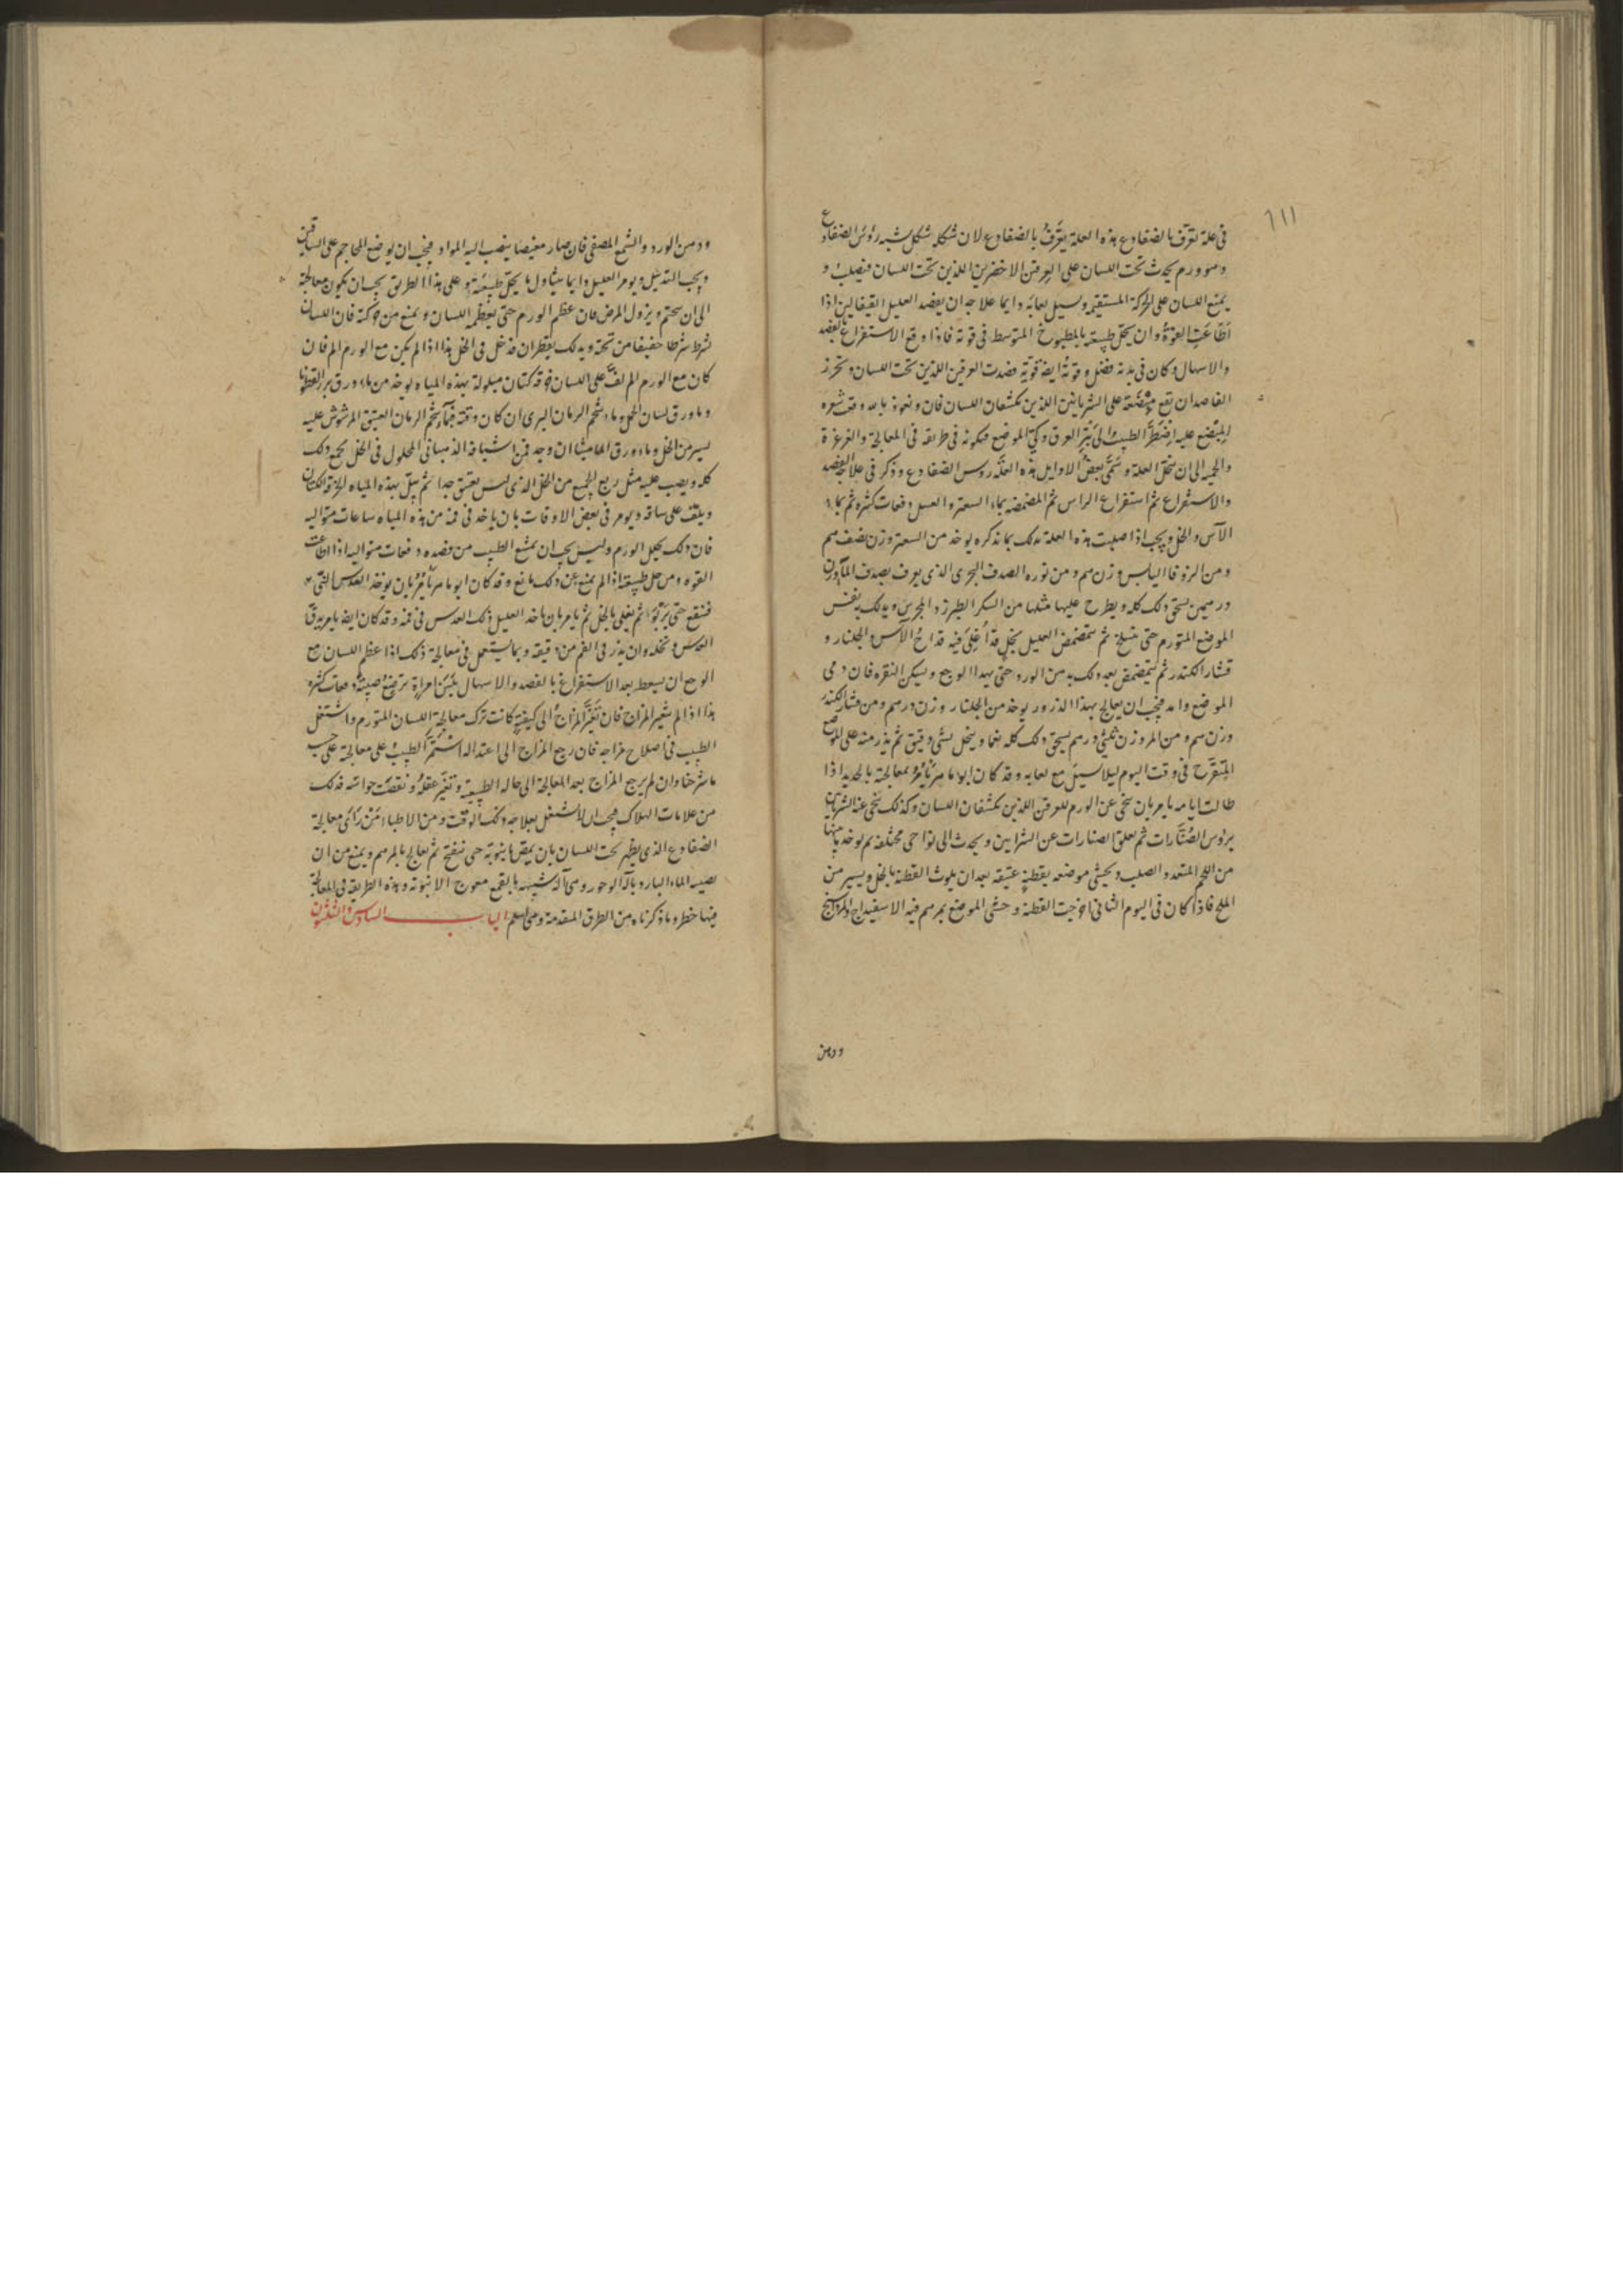 ١١١
في علة تعرف بالضفادع هذه العلة يعرف بالضفادع لان شكله شكل شبيه رؤس الضفادع
وهو ورم يحدث تحت اللسان على العرقين الاخضرين اللذين تحت اللسان فيصلب و
يمنع اللسان على الحركة المستقيمه ويسيل لعابه دايما علاجه ان يفصد العليل القيفالين اذا
اطاعت القوة وان يحل طبيعته بالمطبوخ المتوسط في قوته فاذا وقع الاستفراغ بالفصد
والاسهال وكان في بدنه فضل وقوته ايضا قوية فصدت العرقين اللذين تحت اللسان وتحرز
الفاصد ان يقع مبضعه على الشريانين اللذين يكتنفان اللسان فان ونعوذ بالله وقعت شعره
المبضع عليه اضطر الطبيب الى بتر العرق وكي الموضع فيكونه في طريقه في المعالجة والغرغرة
والحميه الى ان تنحل العلة وسمى بعض الاوايل هذه العلة رؤس الضفادع وذكر في علاجه الفصد
والاستفراغ ثم استفراغ الراس ثم المضمضه بماء السعتر والعسل دفعات كثيره ثم بماء
الآس والخل ويجب اذا صلبت هذه العلة تدلك بما نذكره يوخذ من السعتر وزن نصف درهم
ومن الزوفا اليابس وزن درهم ومن نوره الصدف البحري الذي يعرف بصدف الماء وزن
درهمين يسحق ذلك كله ويطرح عليها مثلها من السكر الطبرزد المجريش ويدلك به نفس
الموضع المتورم حتى ينسلخ ثم يتمضمض العليل بخل قد اغلي فيه قداح الآس والجلنار و
قشار الكندر ثم يتمضمض بعد ذلك بدهن الورد حتى يهدا الوجع ويسكن النقره فان دمى
الموضع وامد فيجب ان يعالج بهذا الذرور يوخذ من الجلنار وزن درهم ومن قشار الكندر
وزن درهم ومن المر وزن ثلثي درهم يسحق ذلك كله نعما وينخل بشي دقيق ثم يذر منه على الموضع
المتقرح في وقت اليوم ليلا يسيل مع لعابه وقد كان ابو ماهر يامر بمعالجة بالحديد اذا
طالت ايامه يامر بان ينحى عن الورم للعرقين اللذين يكتنفان اللسان وكذلك ينحى عنه الشريانين
برؤس الصنارات ثم تعلق الصنارات عن الشرايين ويجذب الى نواحي مختلفه ثم يوخذ ما بينها
من اللحم المتعقد والصلب ويحشى موضعه بقطنة عتيقه بعد ان يلوث القطنة بالخل ويسير من
الملح فاذا كان في اليوم الثاني اخرجت القطنة وحشى الموضع بمرهم فيه الاسفيداج والمرداسنج
ودهن
ودهن الورد والشمع المصفى فان صار مغيضا ينصب اليه المواد فيجب ان يوضع المحاجم على الساقين
ويجب التدبير ويومر العليل دايما بتناول ما يحل طبيعته وعلى هذا الطريق يجب ان يكون معالجة
الى ان يختم ويزول المرض فان عظم الورم حتى يعظم اللسان ويمنع من حركته فان اللسان
يشرط شرطا خفيفا من تحته ويدلك بقطران قد خل في الخل هذا اذا لم يكن مع الورم الم فان
كان مع الورم الم لف على اللسان خرقه كتان مبلولة بهذه المياه يوخذ من ماء ورق بزرقطونا
وماء ورق لسان الحمل وماء شحم الرمان البري ان كان وقته فماء شحم الرمان العتيق المرشوش عليه
يسير من الخل وماء ورق الماميثا ان وجد فمن اشيافه الذهبياني المحلول في الخل يجمع ذلك
كله ويصب عليه مثل ربع الجميع من الخل الذي ليس بعتيق جدا ثم يبل بهذه المياه الخرقة الكتان
ويلف على ساقه ويومر في بعض الاوقات بان ياخذ في فمه من هذه المياه ساعات متواليه
فان ذلك يحلل الورم وليس يجب ان يمتنع الطبيب من فصده دفعات متواليه اذا اطاعت
القوه ومن حل طبيعته اذا لم يمنع عن ذلك مانع وقد كان ابو ماهر يامر بان يوخذ العدس النقي
فينقع حتى يربوا ثم يغلى بالخل ثم يامر بان ياخذ العليل ذلك العدس في فمه وقد كان ايضا يامر بدق
العدس ونخله وان يذر في الفم من دقيقه ومما يستعمل في معالجة ذلك اذا عظم اللسان مع
الوجع ان يسعط بعد الاستفراغ بالفصد والاسهال بلبن امراة ترضع صبية دفعات كثيره
هذا اذا لم يتغير المزاج فان تغير المزاج الى كيفية كانت ترك معالجة اللسان المتورم واشتغل
الطبيب في اصلاح مزاجه فان رجع المزاج الى اعتداله استمر الطبيب على معالجة على حسب
ما شرحنا وان لم يرجع المزاج بعد المعالجة الى حاله الطبيعية وتغير عقله ونقصت حواسه فذلك
من علامات الهلاك فيجب ان لا نشتغل بعلاجه ذلك الوقت ومن الاطباء من رأى معالجة
الضفادع الذي يظهر تحت اللسان بان يمص بانبوبة حتى ينفتح ثم يعالج بالمرهم ويمنع من ان
يصيبه الماء البارد بآلة الوجور وهي آلة شبيهه بالقمع معوج الانبوبة وهذه الطريقة في المعالجة
فيها خطر وما ذكرناه من الطرق المتقدمة وهي اسلم الباب السادس والثلثون